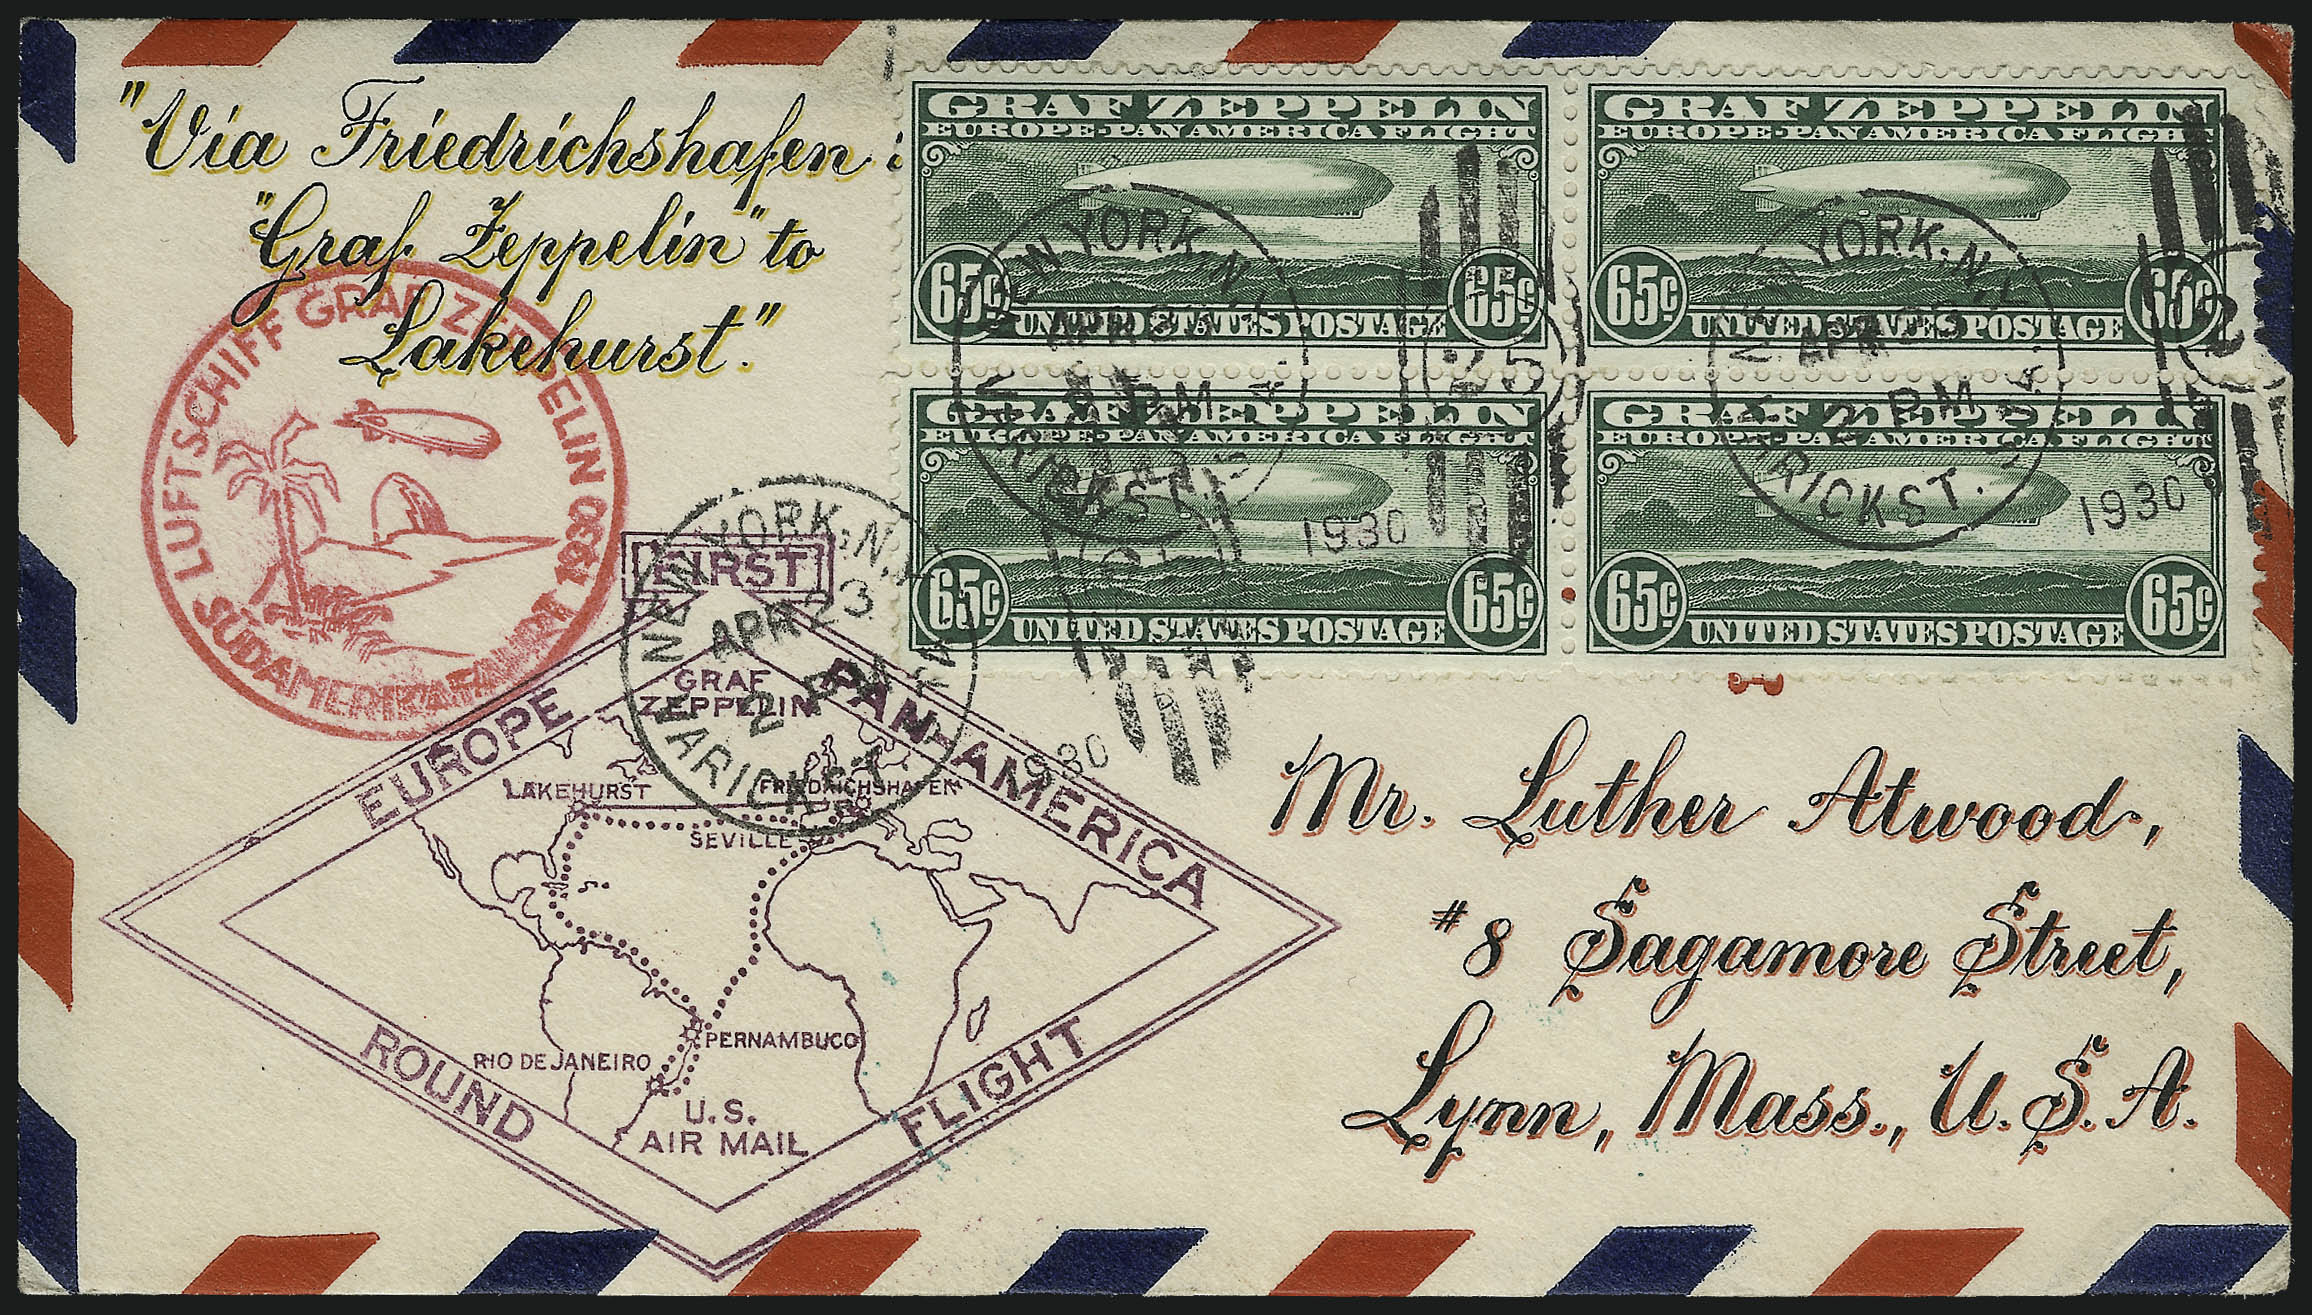 "Via Friedrichshafen :
"Graf Zeppelin" to
Lakehurst."
GRAF ZEPPELIN
EUROPE-PAN AMERICA FLIGHT
65¢ 65¢
UNITED STATES POSTAGE
GRAF ZEPPELIN
EUROPE-PAN AMERICA FLIGHT
65¢ 65¢
UNITED STATES POSTAGE
GRAF ZEPPELIN
EUROPE-PAN AMERICA FLIGHT
65¢ 65¢
UNITED STATES POSTAGE
GRAF ZEPPELIN
EUROPE-PAN AMERICA FLIGHT
65¢ 65¢
UNITED STATES POSTAGE
NEW YORK, N.Y.
APR
2 PM
VARICK ST.
1930
25
NEW YORK, N.Y.
APR
2 PM
VARICK ST.
1930
LUFTSCHIFF GRAF ZEPPELIN 1930
SÜDAMERIKAFAHRT
NEW YORK, N.Y.
APR 23
2 PM
VARICK ST.
1930
FIRST
EUROPE PAN-AMERICA
GRAF
ZEPPELIN
LAKEHURST FRIEDRICHSHAFEN
SEVILLE
PERNAMBUCO
RIO DE JANEIRO
U.S.
AIR MAIL
ROUND FLIGHT
Mr. Luther Atwood,
#8 Sagamore Street,
Lynn, Mass., U. S. A.